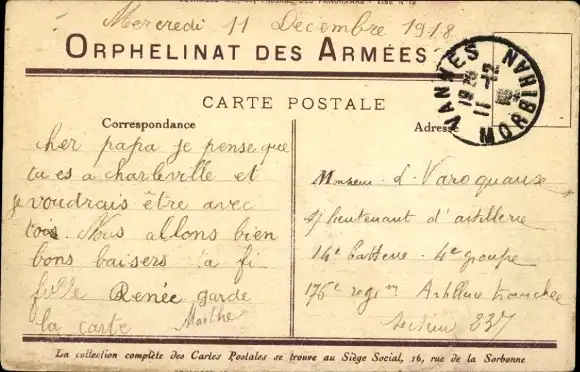 Mercredi 11 Décembre 1918
ORPHELINAT DES ARMÉES
CARTE POSTALE
Correspondance
cher papa je pense que
tu es a charleville et
je voudrais être avec
toi. Nous allons bien
bons baisers ta fi
fille Renée garde
la carte Marthe
Adresse
Monsieur L. Varoquaux
s/ lieutenant d'artillerie
14e batterie - 4e groupe
176e regim Artillerie tranchée
Secteur 237
VANNES
MORBIHAN
11 -12
La collection complète des Cartes Postales se trouve au Siège Social, 16, rue de la Sorbonne